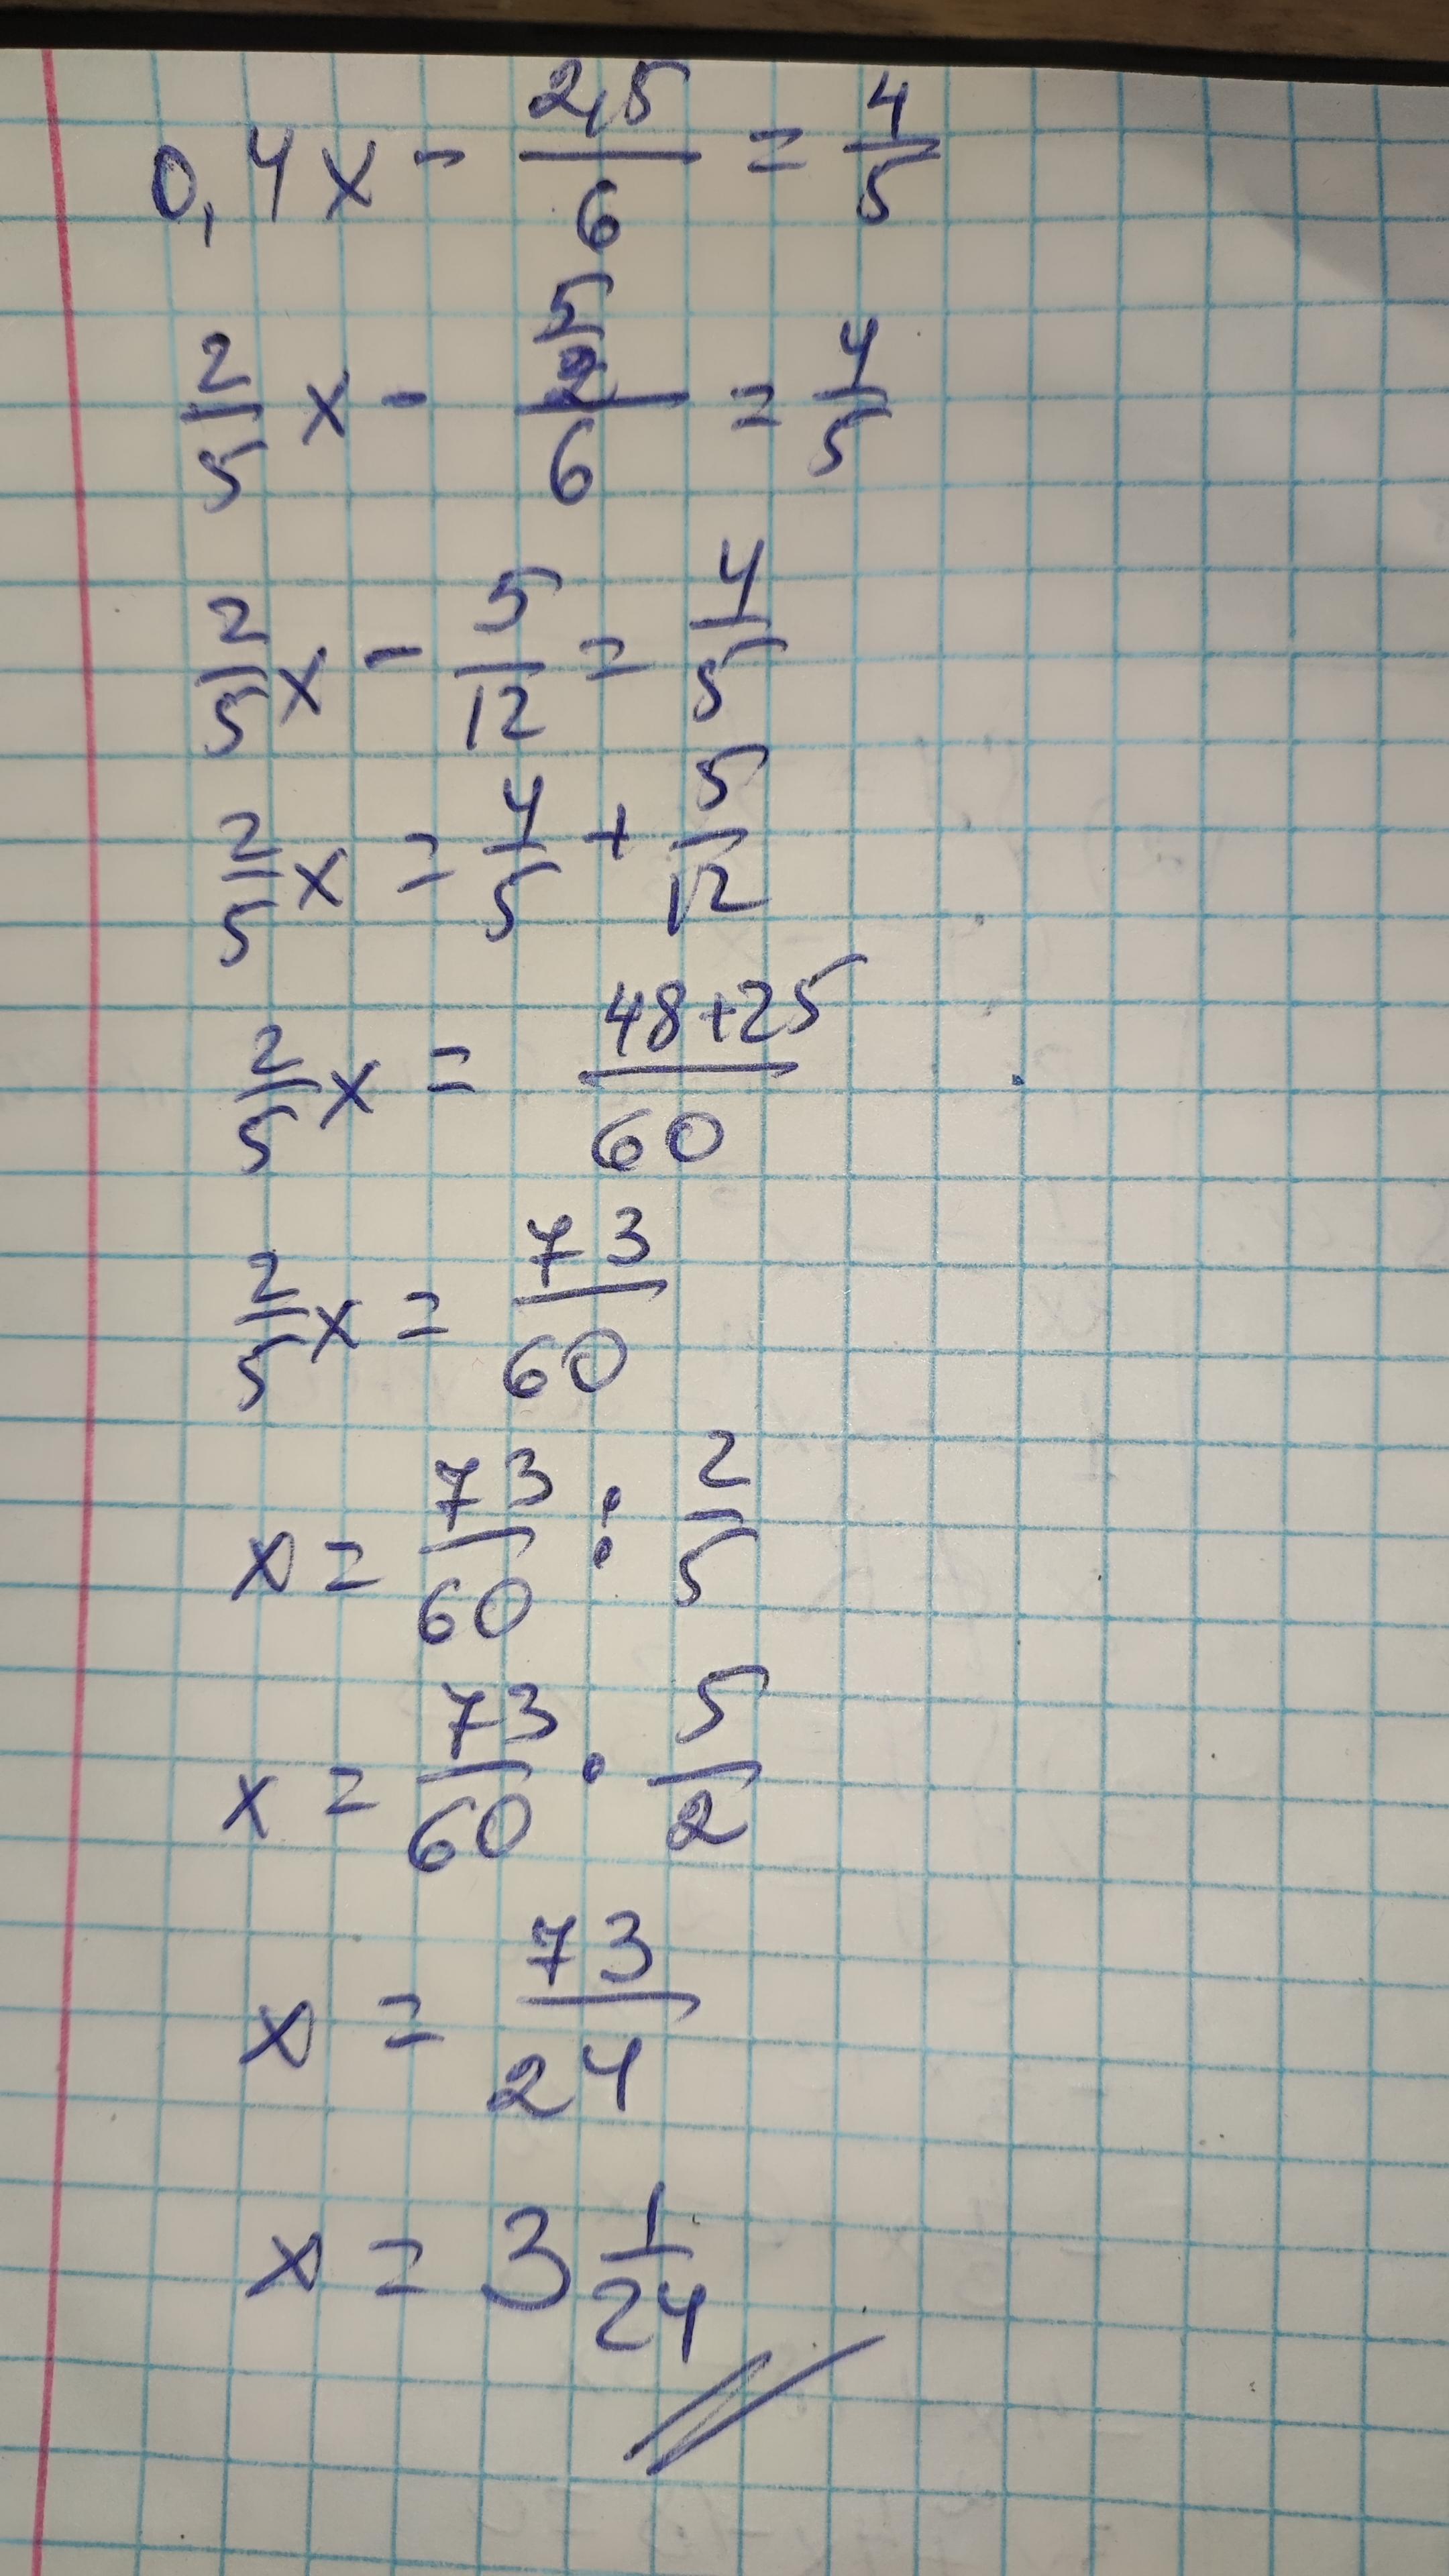 0,4x - 2,5/6 = 4/5
2/5 x - (5/2)/6 = 4/5
2/5 x - 5/12 = 4/5
2/5 x = 4/5 + 5/12
2/5 x = (48+25)/60
2/5 x = 73/60
x = 73/60 : 2/5
x = 73/60 · 5/2
x = 73/24
x = 3 1/24